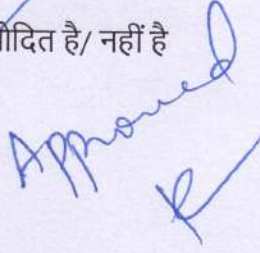 मोदित है/ नहीं है
Approved